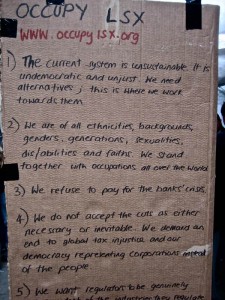 OCCUPY LSX
www.occupylsx.org
1) The current system is unsustainable. It is
undemocratic and unjust. We need
alternatives; this is where we work
towards them.
2) We are of all ethnicities, backgrounds,
genders, generations, sexualities,
dis/abilities and faiths. We stand
together with occupations all over the world.
3) We refuse to pay for the banks' crisis.
4) We do not accept the cuts as either
necessary or inevitable. We demand an
end to global tax injustice and our
democracy representing corporations instead
of the people.
5) We want regulators to be genuinely
of the industries they regulate